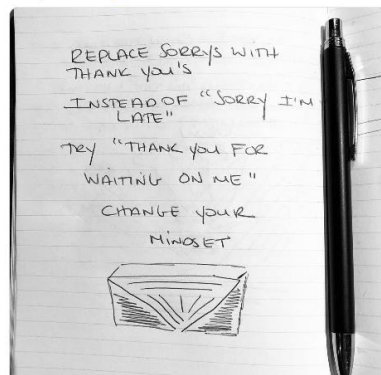 REPLACE SORRYS WITH
THANK YOU'S
INSTEAD OF "SORRY I'M
LATE"
TRY "THANK YOU FOR
WAITING ON ME"
CHANGE YOUR
MINDSET